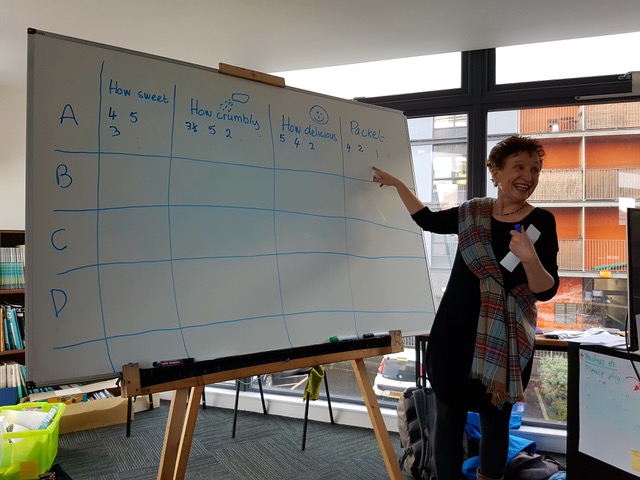 How sweet How crumbly How delicious Packet
A 4 5 7½ 5 2 5 4 2 4 2
3
B
C
D